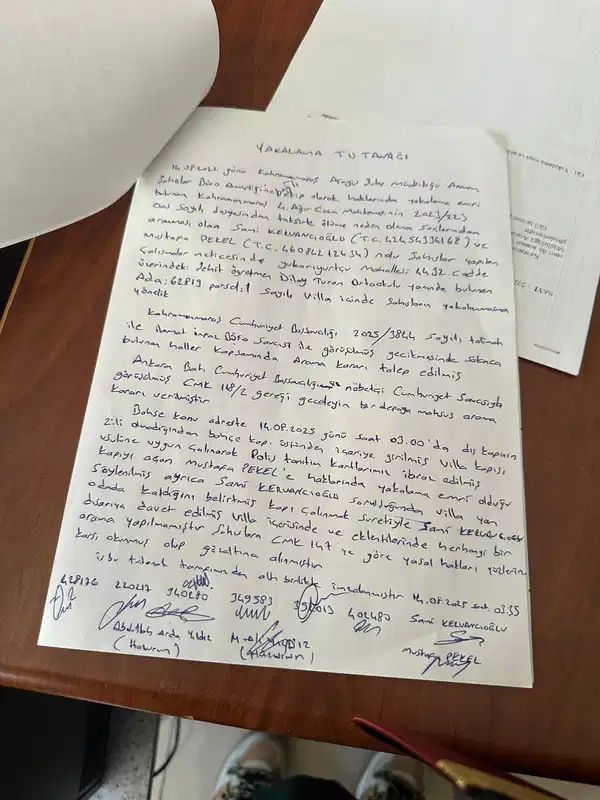 YAKALAMA TUTANAĞI
14.08.2025 günü Kahramanmaraş Asayiş Şube Müdürlüğü Aranan
Şahıslar Büro Amirliğine takip olarak haklarında yakalama emri
bulunan Kahramanmaraş 4. Ağır Ceza Mahkemesinin 2023/223
esas sayılı dosyasından taksirle ölüme neden olma suçlarından
araması olan Sami KERVANCIOĞLU (T.C. 42454336168) ve
Mustafa PEKEL (T.C. 46084212434) ndu şahıslar yapılan
Çalışmalar neticesinde yukarıyurtçu Mahallesi 4432. cadde
üzerindeki Şehit öğretmen Dilay Turan Ortaokulu yanında bulunan
Ada: 62819 parsel: 1 Sayılı Villa içinde şahısların yakalanmasına
yönelik
Kahramanmaraş Cumhuriyet Başsavcılığı 2025/3844 sayılı talimatı
ile ilamat infaz Büro Savcısı ile görüşülmüş gecikmesinde sakınca
bulunan haller kapsamında Arama kararı talep edilmiş
Ankara Batı Cumhuriyet Başsavcılığının nöbetçi Cumhuriyet Savcısıyla
görüşülmüş CMK 118/2 gereği geceleyin bir defaya mahsus arama
kararı verilmiştir
Bahse konu adreste 14.08.2025 günü saat 03.00'da dış kapının
zili olmadığından bahçe kapı üstünden içeriye girilmiş Villa kapısı
usulüne uygun Çalınarak Polis tanıtım kartlarımız ibraz edilmiş
kapıyı açan mustafa PEKEL'e haklarında yakalama emri olduğu
Söylenilmiş ayrıca Sami KERVANCIOĞLU sorulduğunda villa yan
odada kaldığını belirtmiş kapı Çalınmak suretiyle Sami KERVANCIOĞLU
dışarıya davet edilmiş Villa içerisinde ve eklentilerinde herhangi bir
arama yapılmamıştır Şahıslara CMK 147'ye göre yasal hakları yüzlerine
karşı okunmuş olup gözaltına alınmıştır
iş bu tutanak tarafımızdan altı birlikte imzalanmıştır 14.08.2025 saat 03.35
428176 220217 340280 349583 392013 402480 Sami KERVANCIOĞLU
Abdullah Arda Yıldız
(Hazurun) (Hazurun) Mustafa PEKEL